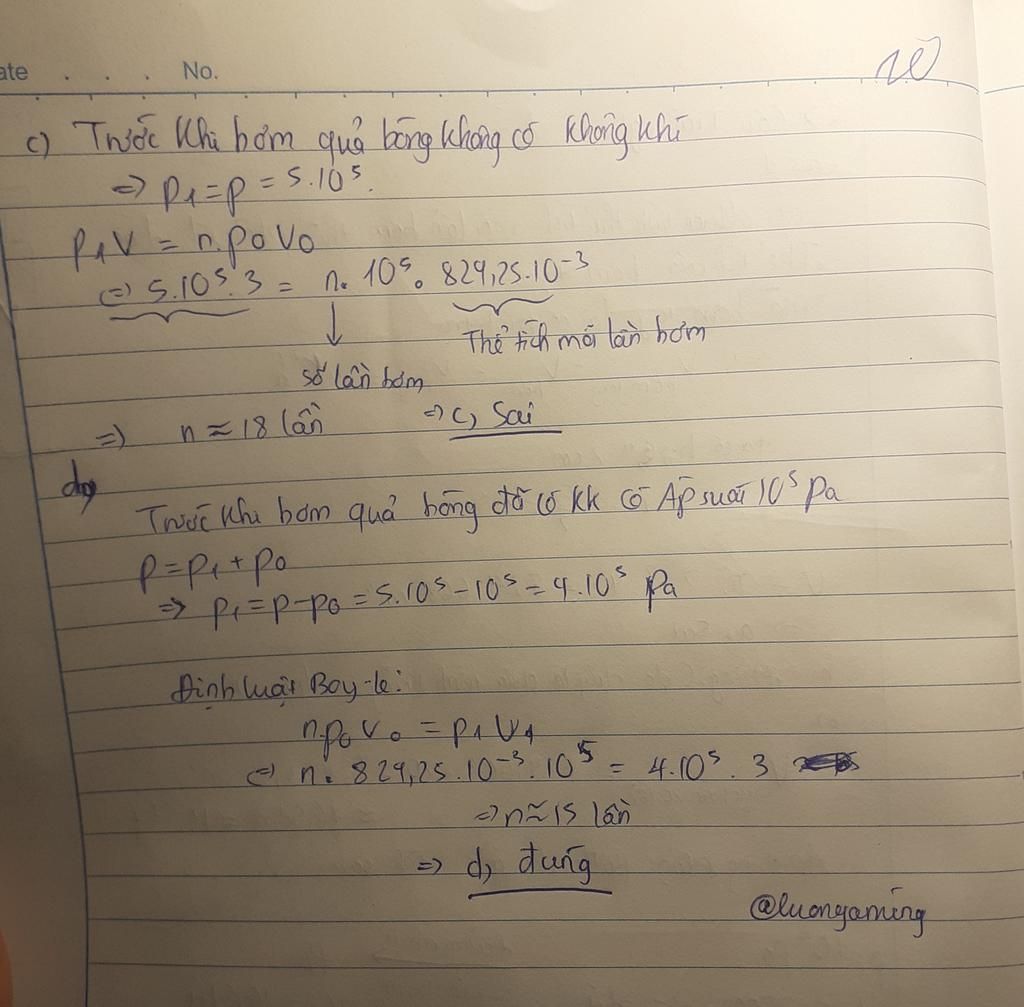 ate . . . No.
c) Trước khi bơm quả bóng không có không khí
=> p1 = p = 5.10⁵.
p1V = n.p0V0
(=) 5.10⁵.3 = n. 10⁵. 824,25.10⁻³
Thể tích mỗi lần bơm
số lần bơm
=> n ≈ 18 lần => c, Sai
d,
Trước khi bơm quả bóng đã có kk có Áp suất 10⁵ Pa
p = p1 + p0
=> p1 = p - p0 = 5.10⁵ - 10⁵ = 4.10⁵ Pa
Định luật Boy-le:
n.p0V0 = p1V1
(=) n. 824,25.10⁻³.10⁵ = 4.10⁵.3
=> n ≈ 15 lần
=> d, đúng
@luongaming